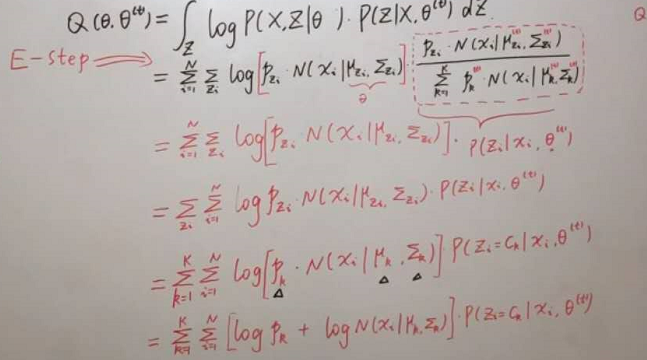 Q(θ, θ⁽ᵗ⁾) = ∫_Z log P(X,Z|θ) · P(Z|X,θ⁽ᵗ⁾) dZ. Q
E-step ⟹ = Σ_{i=1}^{N} Σ_{Zi} log[p_{Zi} · N(xi|μ_{Zi}, Σ_{Zi})] · (p_{Zi}⁽ᵗ⁾ · N(xi|μ_{Zi}⁽ᵗ⁾, Σ_{Zi}⁽ᵗ⁾)) / (Σ_{k=1}^{K} p_k⁽ᵗ⁾ · N(xi|μ_k⁽ᵗ⁾, Σ_k⁽ᵗ⁾))
θ
= Σ_{i=1}^{N} Σ_{Zi} log[p_{Zi} · N(xi|μ_{Zi}, Σ_{Zi})] · P(Zi|xi, θ⁽ᵗ⁾)
= Σ_{Zi} Σ_{i=1}^{N} log p_{Zi} · N(xi|μ_{Zi}, Σ_{Zi}) · P(Zi|xi, θ⁽ᵗ⁾)
= Σ_{k=1}^{K} Σ_{i=1}^{N} log[p_k · N(xi|μ_k, Σ_k)] · P(Zi=C_k|xi, θ⁽ᵗ⁾)
△ △ △
= Σ_{k=1}^{K} Σ_{i=1}^{N} [log p_k + log N(xi|μ_k, Σ_k)] · P(Zi=C_k|xi, θ⁽ᵗ⁾)